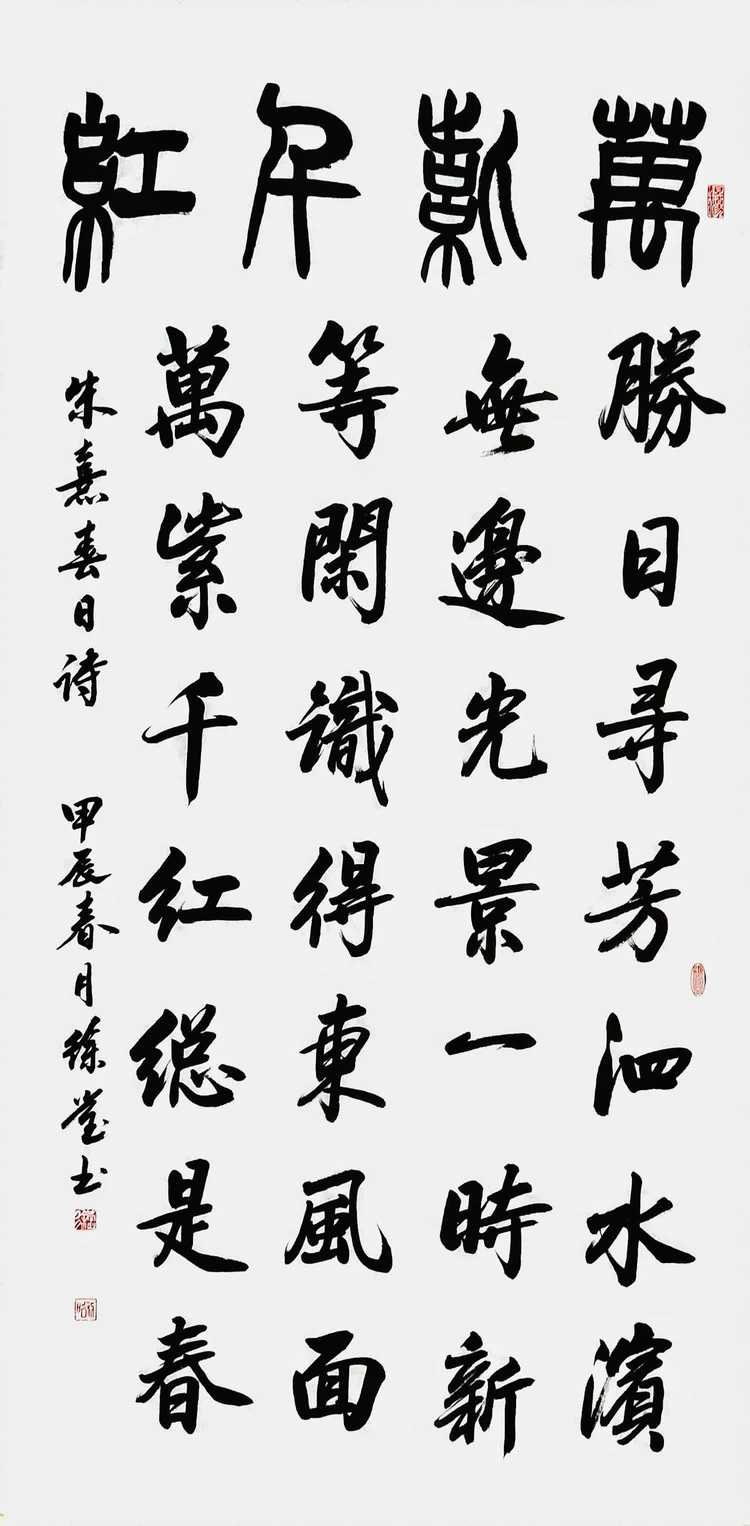 萬紫千紅
勝日尋芳泗水濱
無邊光景一時新
等閑識得東風面
萬紫千红總是春
朱熹春日诗
甲辰春月徐堂书